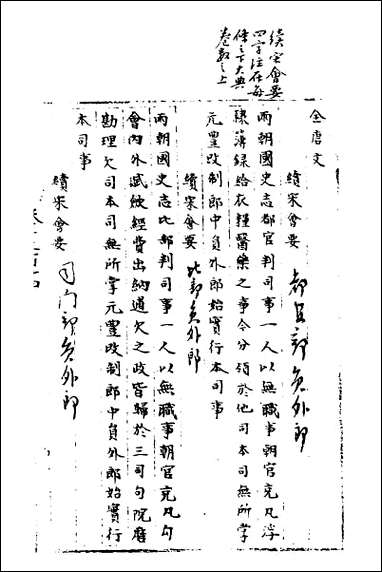 續宋會要
四字注在每
條之下大典
卷數之上
全唐文
續宋會要 都官部員外郎
兩朝國史志都官判司事一人以無職事朝官充凡浮
隸簿錄給衣糧醫藥之事今分領於他司本司無所掌
元豐改制郎中員外郎始實行本司事
續宋會要 比部員外郎
兩朝國史志比部判司事一人以無職事朝官充凡勾
會內外賦斂經費出納逋欠之政皆歸於三司勾院磨
勘理欠司本司無所掌元豐改制郎中員外郎始實行
本司事
續宋會要 司門部員外郎